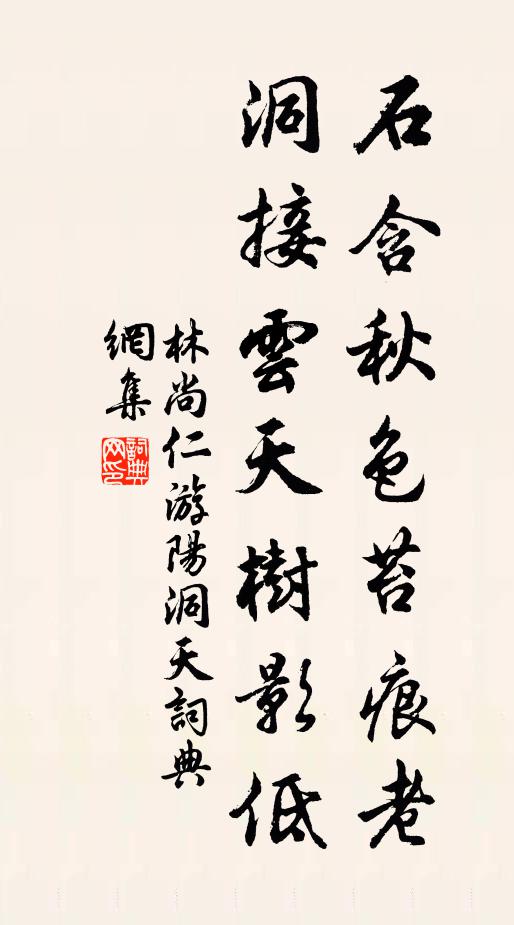 石含秋色苔痕老
洞接雲天樹影低
林尚仁游陽洞天詞典
網集
詞典網印